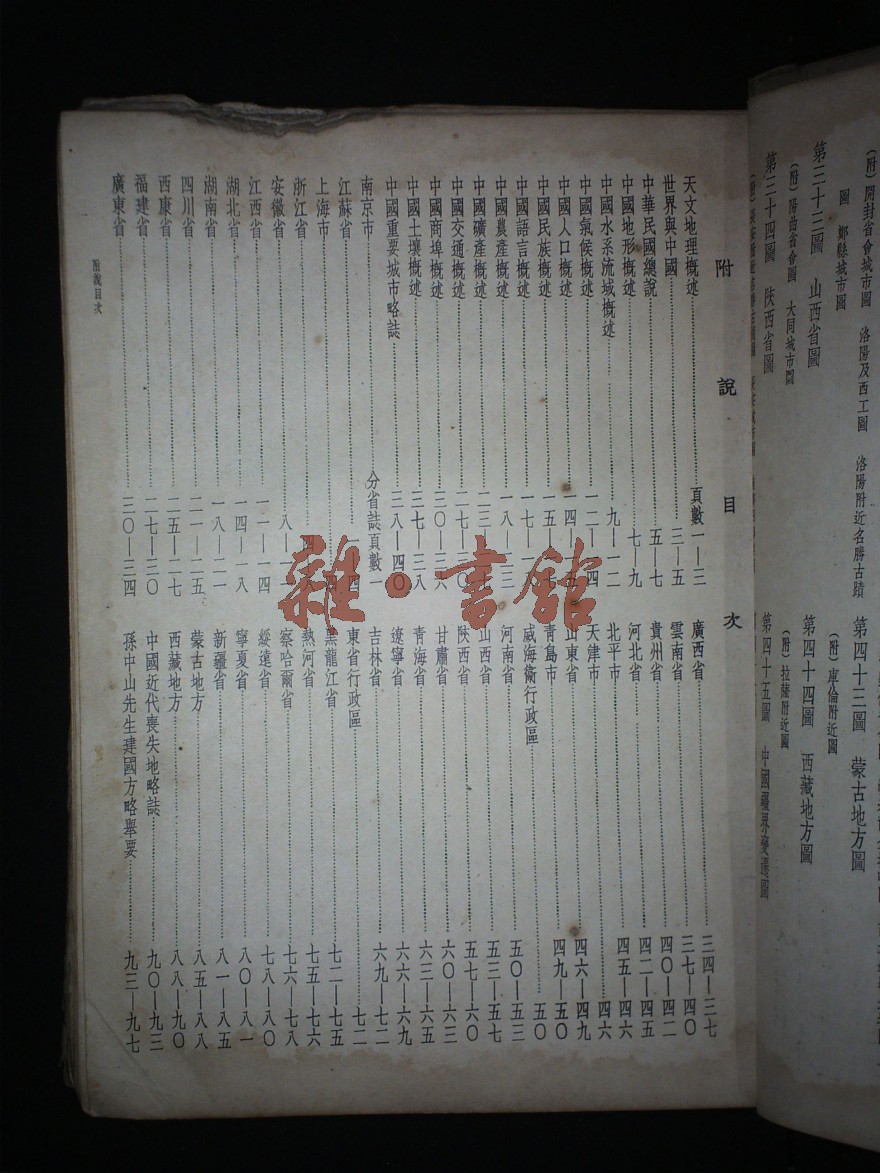 （附）開封省會城市圖　洛陽及西工圖　洛陽附近名勝古蹟
圖　鄭縣城市圖
第三十三圖　山西省圖
（附）陽曲省會圖　大同城市圖
第三十四圖　陝西省圖
第四十三圖　蒙古地方圖
（附）庫倫附近圖
第四十四圖　西藏地方圖
（附）拉薩附近圖
第四十五圖　中國疆界變遷圖
附說目次
天文地理概述……頁數一—三
世界與中國……三—五
中華民國總說……五—七
中國地形概述……七—九
中國水系流域概述……九—一二
中國氣候概述……一二—一四
中國人口概述……一四—一五
中國民族概述……一五—一七
中國語言概述……一七—一八
中國農產概述……一八—二三
中國礦產概述……二三—二七
中國交通概述……二七—三〇
中國商埠概述……三〇—三六
中國土壤概述……三七—三八
中國重要城市略誌……三八—四〇
南京市……分省誌頁數一
江蘇省……一—四
上海市……四
浙江省……四—八
安徽省……八—一一
江西省……一一—一四
湖北省……一四—一八
湖南省……一八—二一
四川省……二一—二五
西康省……二五—二七
福建省……二七—三〇
廣東省……三〇—三四
廣西省……三四—三七
雲南省……三七—四〇
貴州省……四〇—四二
河北省……四二—四五
北平市……四五—四六
天津市……四六
山東省……四六—四九
青島市……四九—五〇
威海衛行政區……五〇
河南省……五〇—五三
山西省……五三—五七
陝西省……五七—六〇
甘肅省……六〇—六三
青海省……六三—六五
遼寧省……六六—六九
吉林省……六九—七二
東省行政區……七二
黑龍江省……七二—七五
熱河省……七五—七六
察哈爾省……七六—七八
綏遠省……七八—八〇
寧夏省……八〇—八一
新疆省……八一—八五
蒙古地方……八五—八八
西藏地方……八八—九〇
中國近代喪失地略誌……九〇—九三
孫中山先生建國方略舉要……九三—九七
附說目次
雜·書館